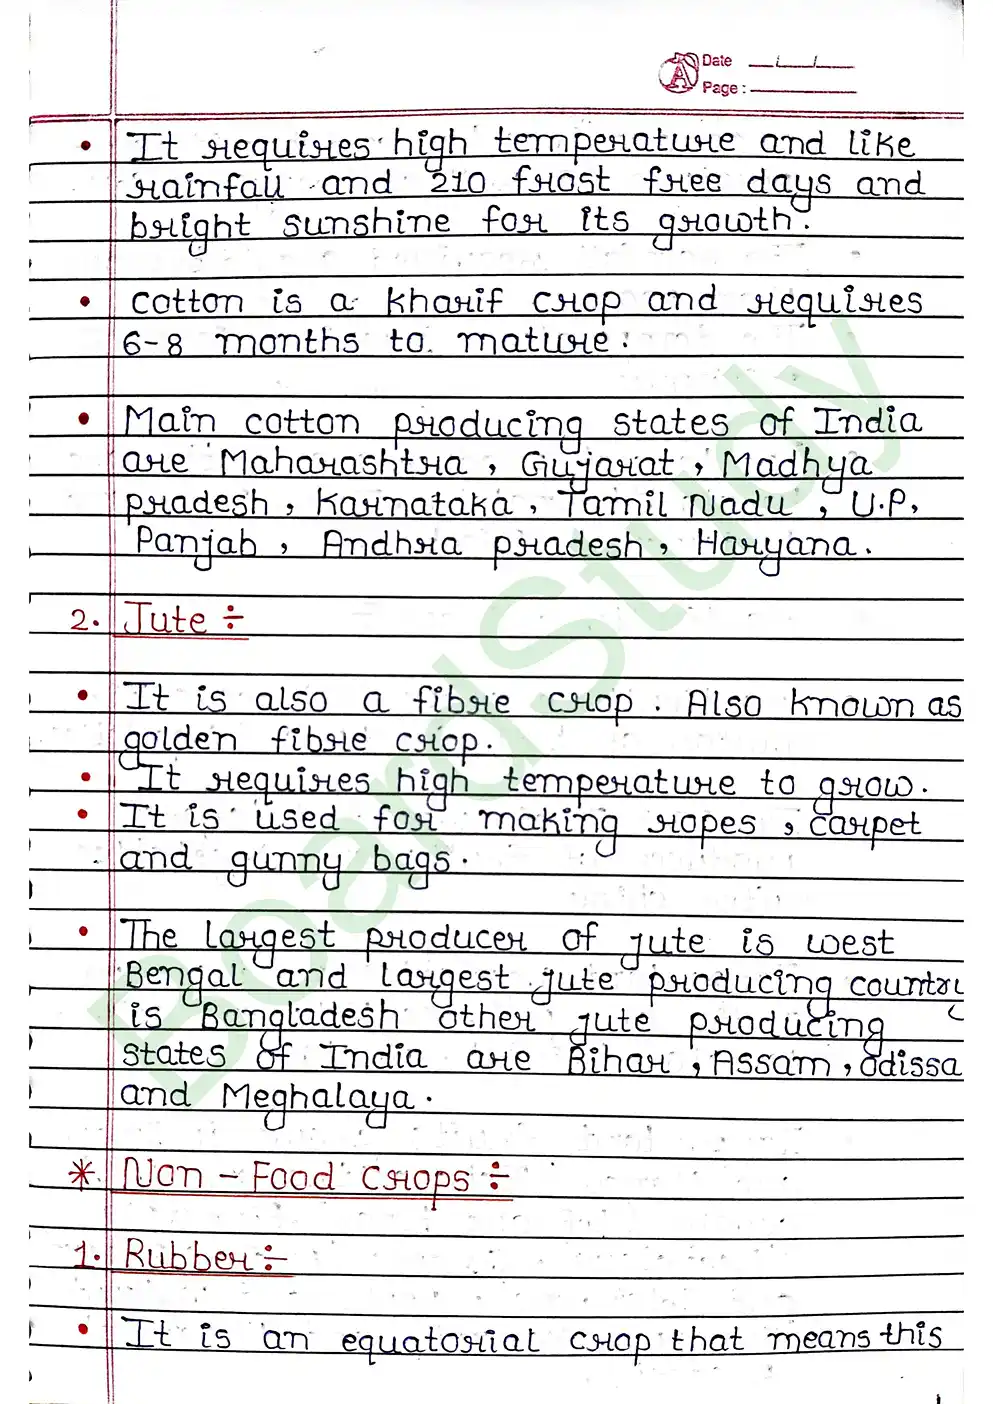 Date __/__/__
Page :
• It requires high temperature and like
rainfall and 210 frost free days and
bright sunshine for its growth.
• cotton is a kharif crop and requires
6-8 months to mature.
• Main cotton producing states of India
are Maharashtra, Gujarat, Madhya
pradesh, Karnataka, Tamil Nadu, U.P,
Panjab, Andhra pradesh, Haryana.
2. Jute ÷
• It is also a fibre crop. Also known as
golden fibre crop.
• It requires high temperature to grow.
• It is used for making ropes, carpet
and gunny bags.
• The largest producer of jute is west
Bengal and largest jute producing country
is Bangladesh other jute producing
states of India are Bihar, Assam, odissa
and Meghalaya.
* Non - Food crops ÷
1. Rubber ÷
• It is an equatorial crop that means this
BoardStudy